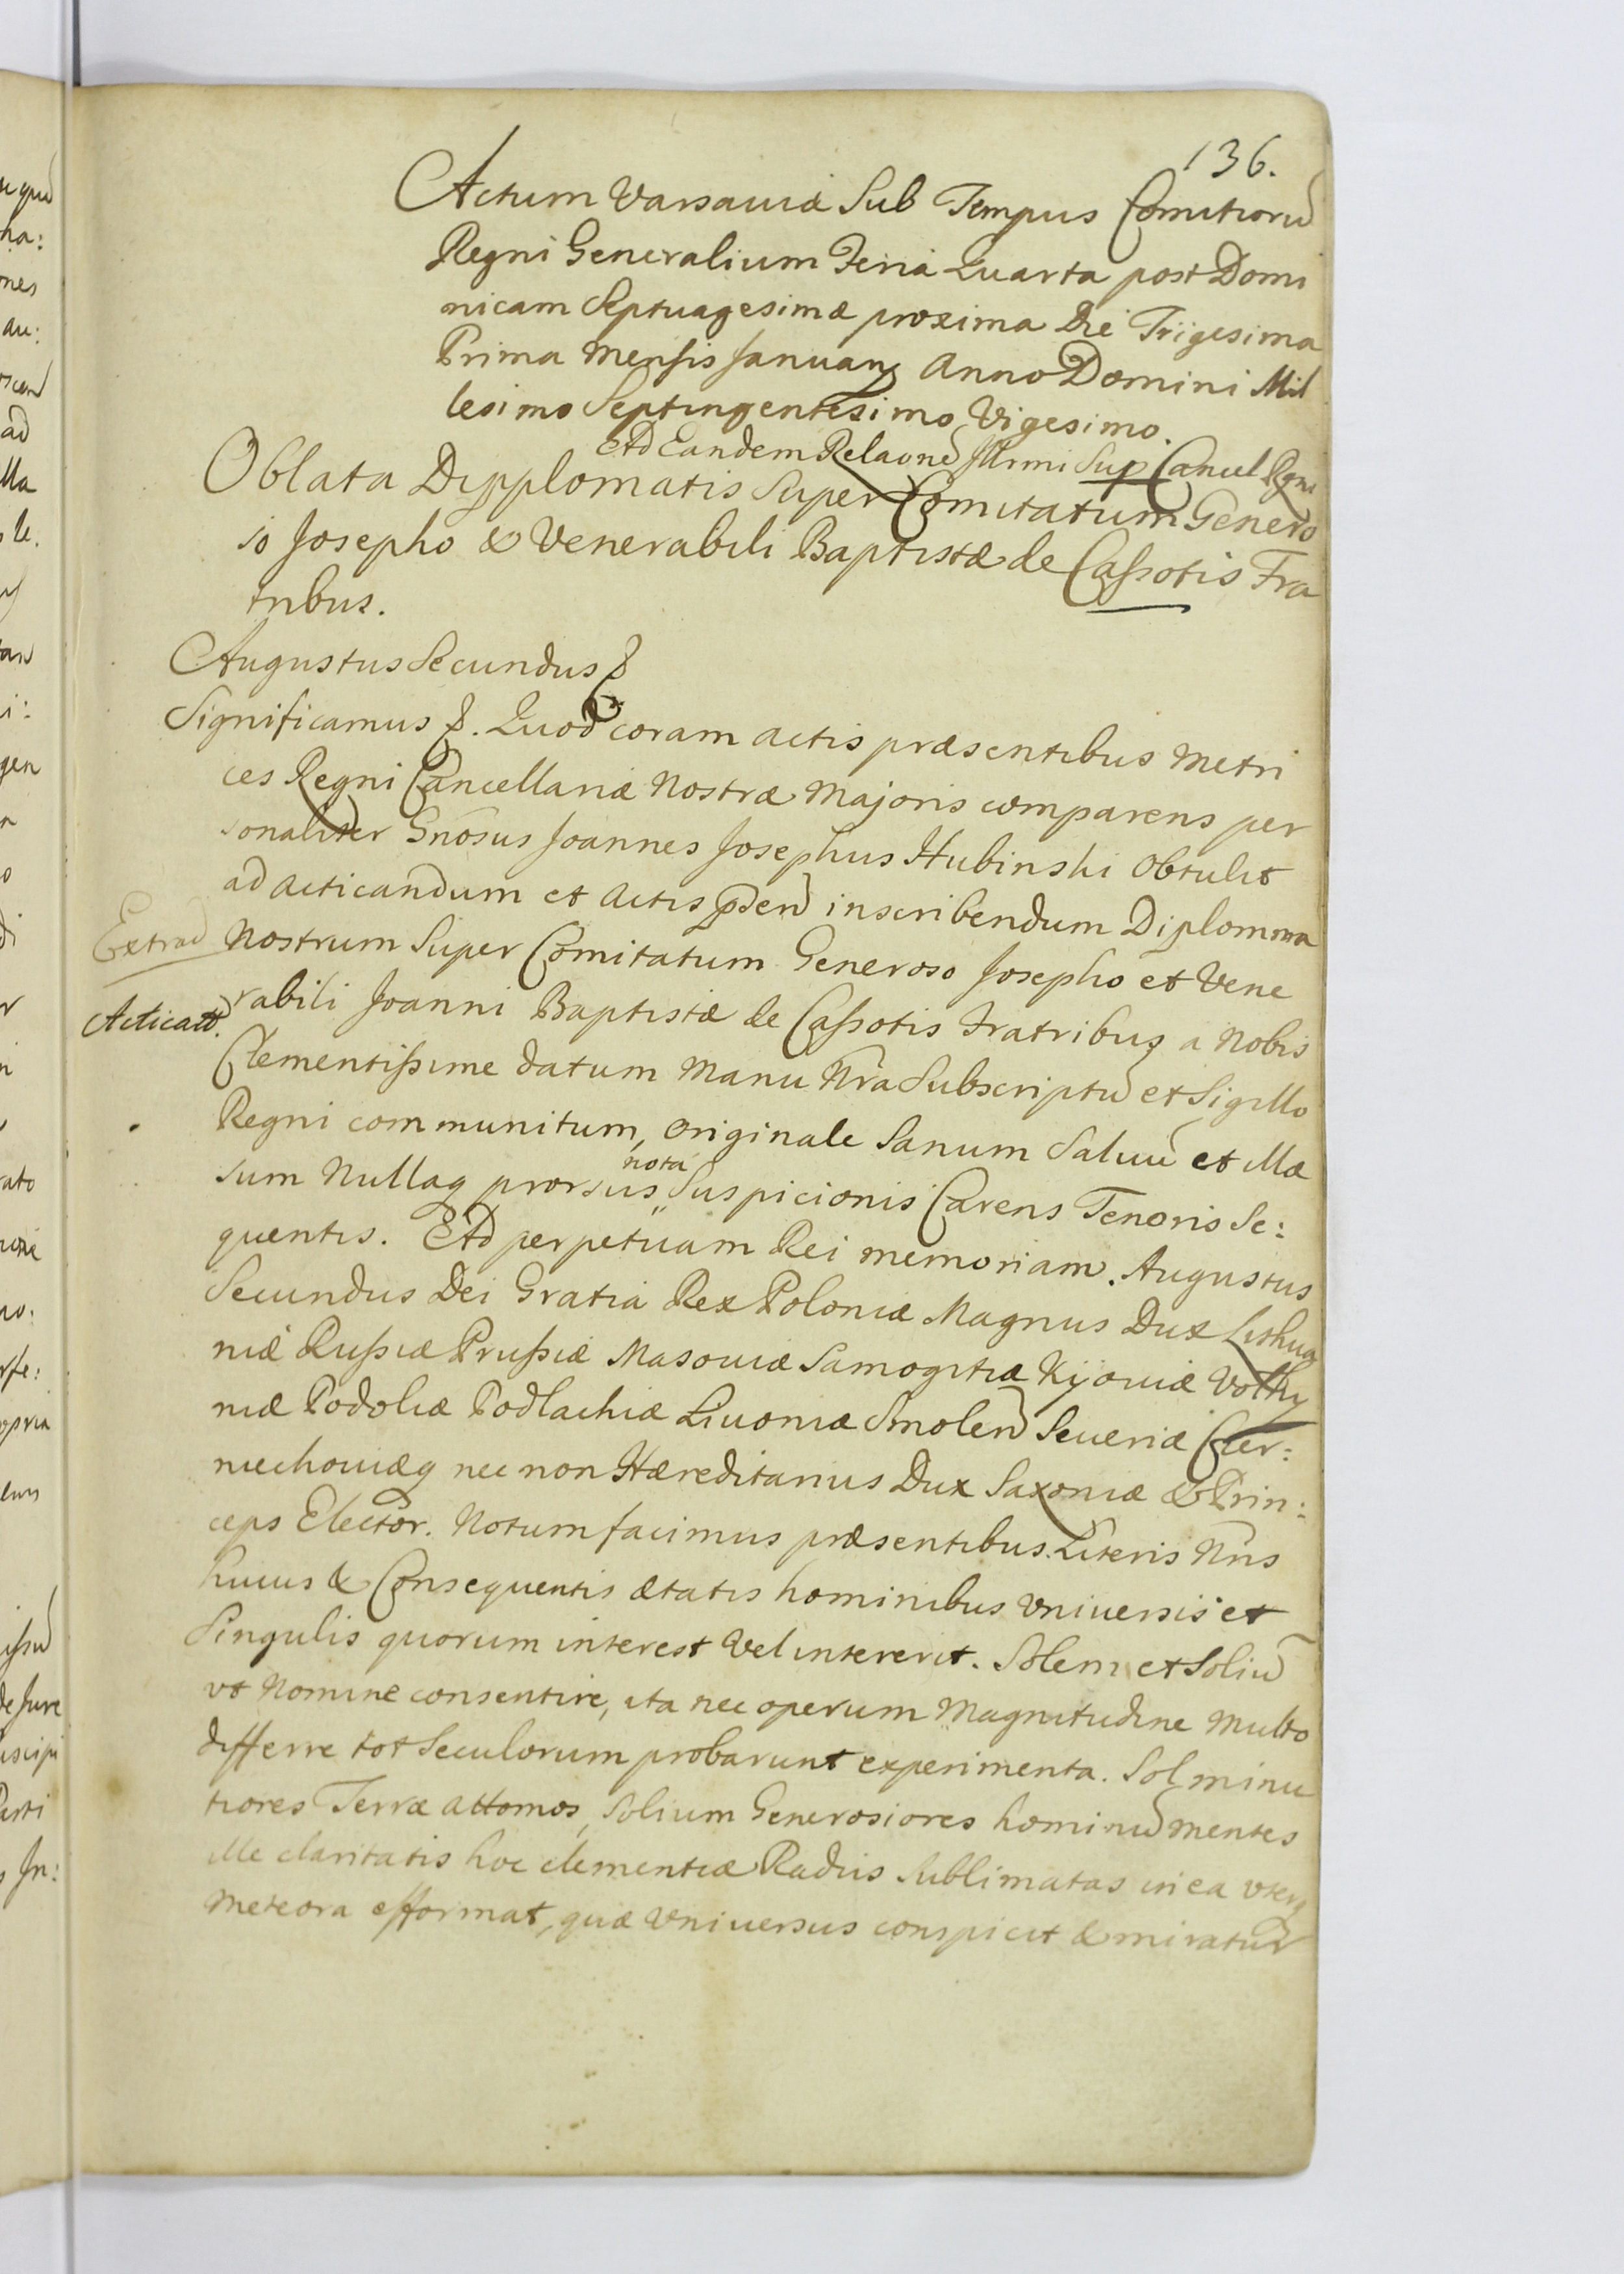 136.
Actum Varsaviæ Sub Tempus Comitiorũ
Regni Generalium Feria Quarta post Domi
nicam Septuagesimæ proxima Die Trigesima
Prima Mensis Januarÿ Anno Domini Mil
lesimo Septingentesimo Vigesimo.
Ad Eandem Relaonẽ Illrmi Sup Cancel Rgni
Oblata Dipplomatis Super Comitatum Genero
so Josepho & Venerabili Baptistæ de Cassotis Fra
tribus.
Augustus Secundus &
Significamus &. Quod coram actis præsentibus Metri
ces Regni Cancellariæ Nostræ Majoris comparens per
sonaliter Gnõsus Joannes Josephus Hubinski Obtulit
ad acticandum et actis pden̄ inscribendum Diplomma
Extrad Nostrum Super Comitatum Generoso Josepho et Vene
Acticatõ. rabili Joanni Baptistæ de Cassotis Fratribus a Nobis
Clementissime datum Manu Nrã Subscriptũ et Sigillo
Regni communitum, Originale Sanum Salvũ et Illæ
sum Nullaq prorsus nota Suspicionis Carens Tenoris Se:
quentis. Ad perpetuam Rei memoriam. Augustus
Secundus Dei Gratia Rex Poloniæ Magnus Dux Lithua
niæ Russiæ Prussiæ Masoviæ Samogitiæ Kijoviæ Volhy
niæ Podoliæ Podlachiæ Livoniæ Smolen̄ Severiæ Czer:
niechoviæq nec non Hæreditarius Dux Saxoniæ & Prin:
ceps Elector. Notum facimus præsentibus Literis Nris
huius & Consequentis ætatis hominibus Universis et
Singulis quorum interest Vel intererit. Solem et Soliũ
ut Nomine consentire, ita nec operum Magnitudine Multo
differre tot Seculorum probarunt experimenta. Sol minu
tiores Terræ attomos, Solium Generosiores hominũ mentes
ille claritatis hoc clementiæ Radiis Sublimatas in ea
Meteora efformat, quæ Universus conspicit & miratur